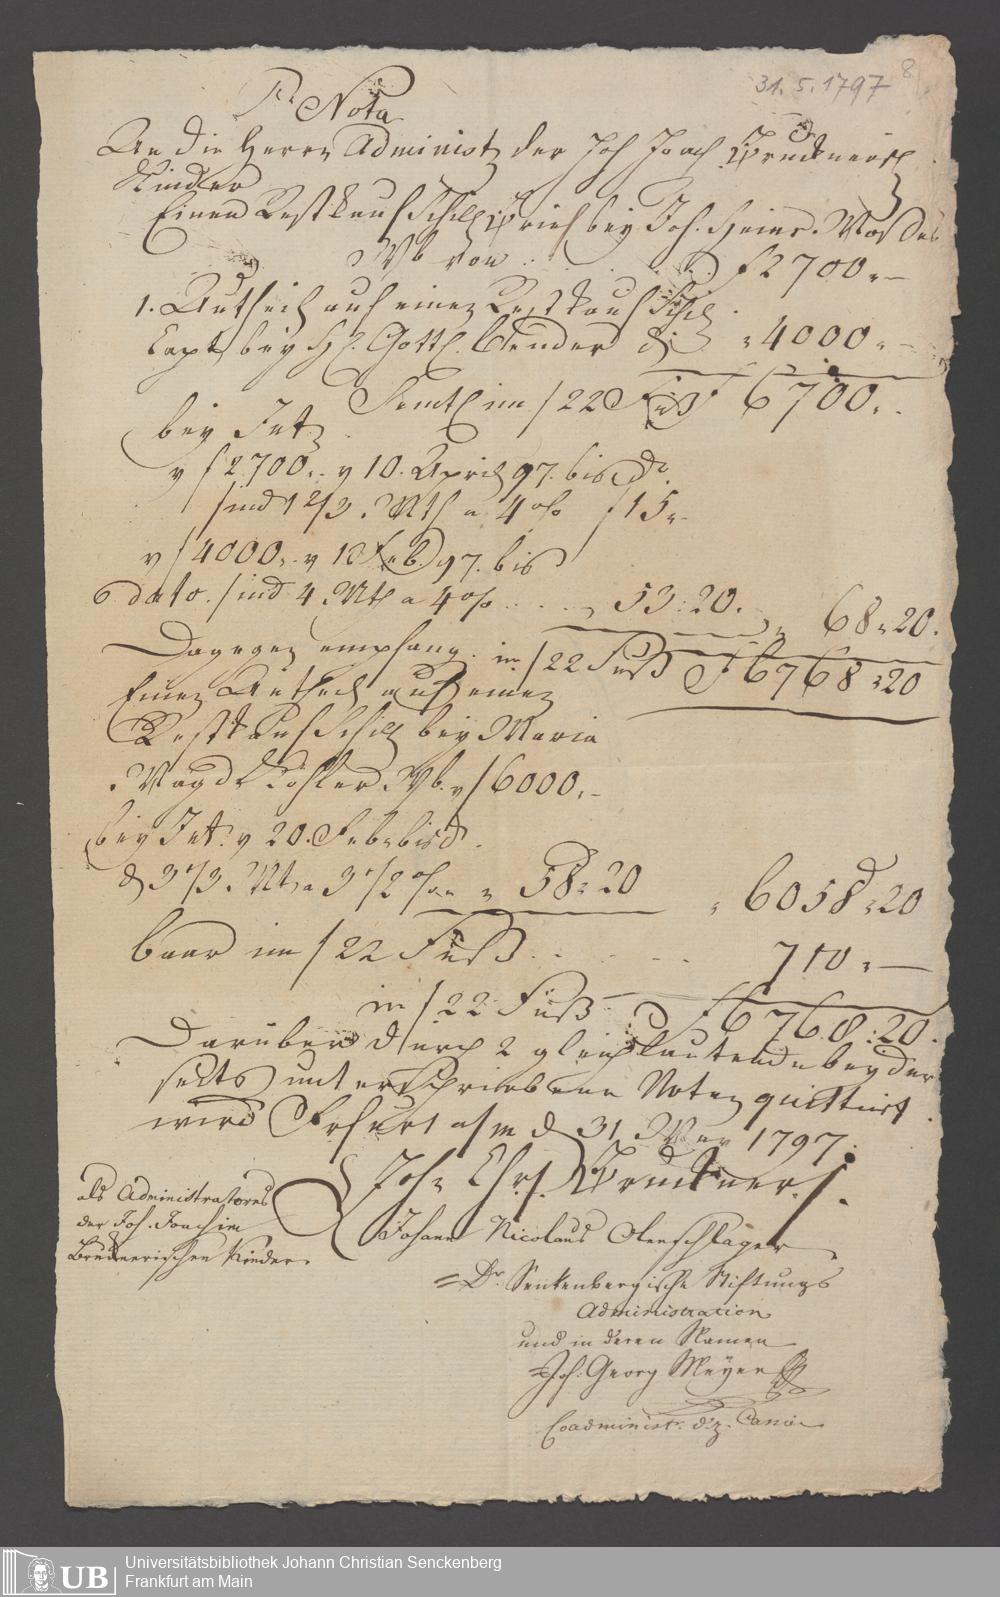 31. 5. 1797
8
Pr Nota
An die Herrn Administ der Joh Joach Pruckners
Kinder
Einen Restkaufschill bey Joh. Heinr.
Wb von f 2700 „ —
1. Antheil auf einen Restkaufschil
Capt bey H. Gottl. Bender „ 4000 „ —
Samtl im f 22 Fuß f 6700 „
bey Int
v f 2700 „ v 10. April 97. bis d
sind 1 2/3 Mth a 4 o/o f 15 „
v f 4000 „ v Feb. 97. bis
dato. sind 4 Mth a 4 o/o 53 : 20. „ 68 „ 20.
Dagegen empfang. in f 22 Fuß f 6768 „ 20
Einen Antheil auf einen
Restkaufschill bey Maria
Magd Köhler Wb. v f 6000 „ —
bey Int. v 20. Feb bis d
3 1/3 Mt a 3 1/2 o/o „ 58 „ 20 „ 6058 „ 20
baar im f 22 Fuß 710 „ —
in f 22 Fuß f 6768 : 20.
Darüber durch 2 gleichlautende beyder
seits unterschriebene Noten quittirt
wird Frfurt a/m d 31 May 1797.
Joh. Chrs. Pruckner.
als Administratores
der Joh. Joachim
Brücknerischen Kinder
Johann Nicolaus Olenschlager
= Dr. Senkenbergische Stiftungs
Administration
und in deren Namen
= Joh: Georg Meyer
Coadministr.
UB
Universitätsbibliothek Johann Christian Senckenberg
Frankfurt am Main